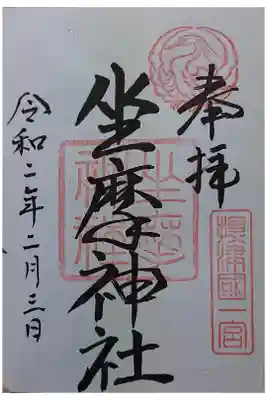 奉拝
摂津國一宮
坐摩神社
令和二年二月三日